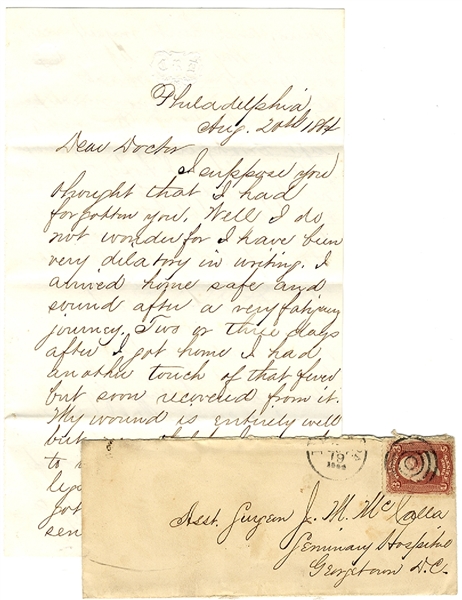 Philadelphia
Aug. 20th 1864
Dear Doctor
I suppose you
thought that I had
forgotten you. Well I do
not wonder for I have been
very dilatory in writing. I
arrived home safe and
sound after a very fatiguing
journey. Two or three days
after I got home I had
another touch of that fever
but soon recovered from it.
My wound is entirely well
but
to
got
sen
19
3 3
Asst. Surgeon J. M. McCalla
Seminary Hospital
Georgetown D.C.